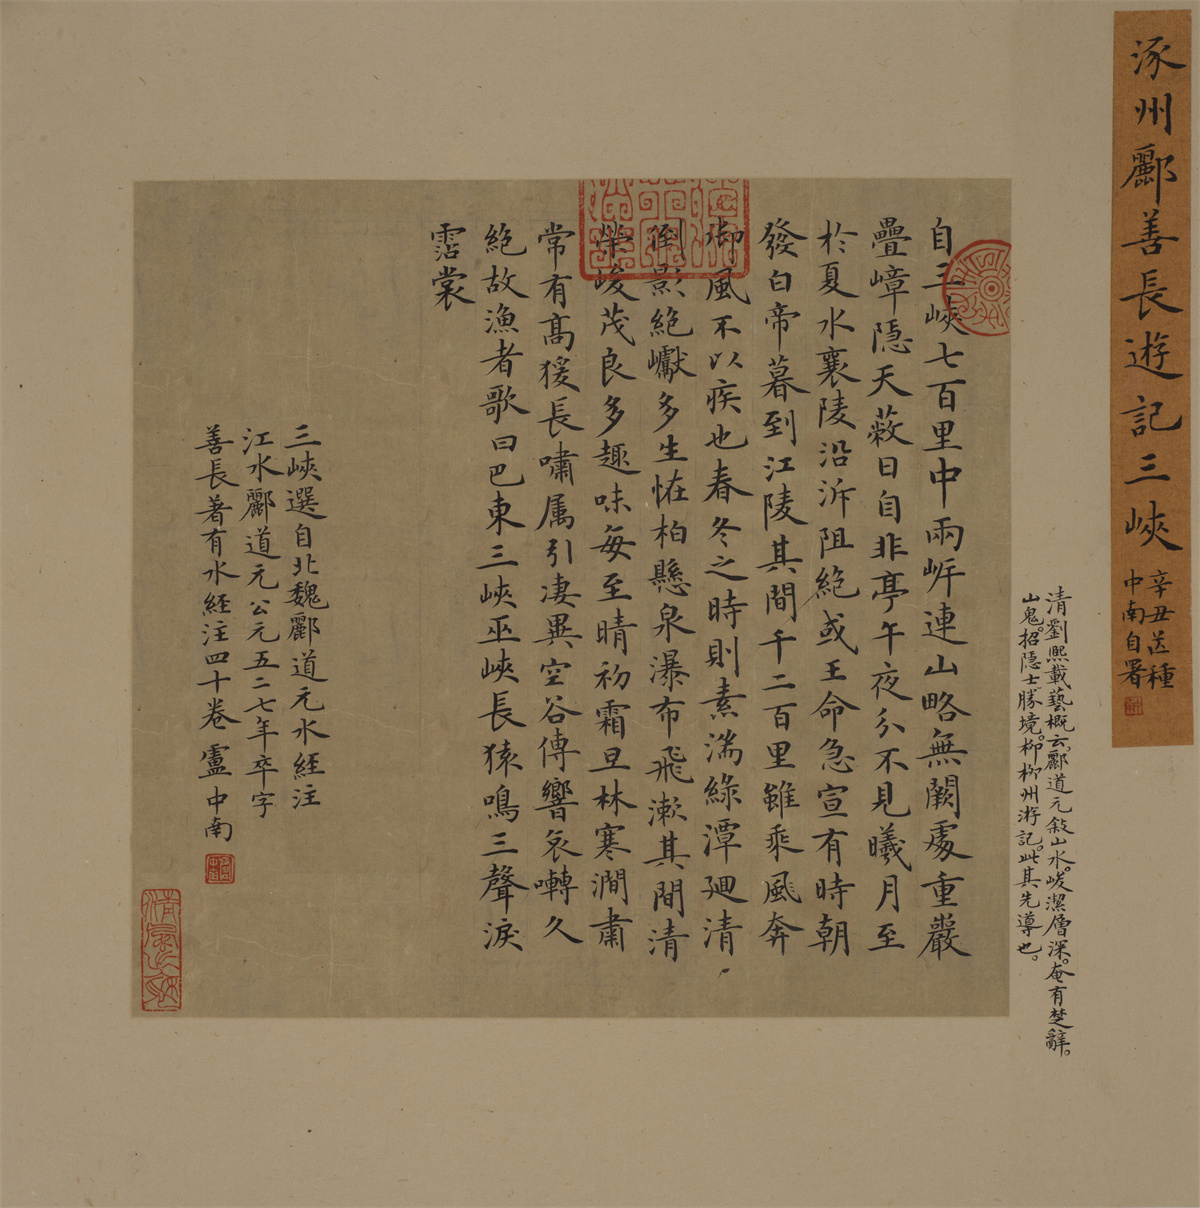 涿州酈善長遊記三峽
辛丑芒種
中南自署
清劉熙載藝概云酈道元敘山水。峻潔層深。奄有楚辭。
山鬼。招隱士勝境。柳柳州游記。此其先導也。
自三峽七百里中兩岸連山略無闕處重巖
疊嶂隱天蔽日自非亭午夜分不見曦月至
於夏水襄陵沿泝阻絶或王命急宣有時朝
發白帝暮到江陵其間千二百里雖乘風奔
御風不以疾也春冬之時則素湍綠潭廻清
倒影絶巘多生怪柏懸泉瀑布飛漱其間清
榮峻茂良多趣味每至晴初霜旦林寒澗肅
常有高猨長嘯属引淒異空谷傳響哀囀久
絶故漁者歌曰巴東三峽巫峽長猿鳴三聲淚
霑裳
三峽選自北魏酈道元水経注
江水酈道元公元五二七年卒字
善長著有水経注四十卷盧中南